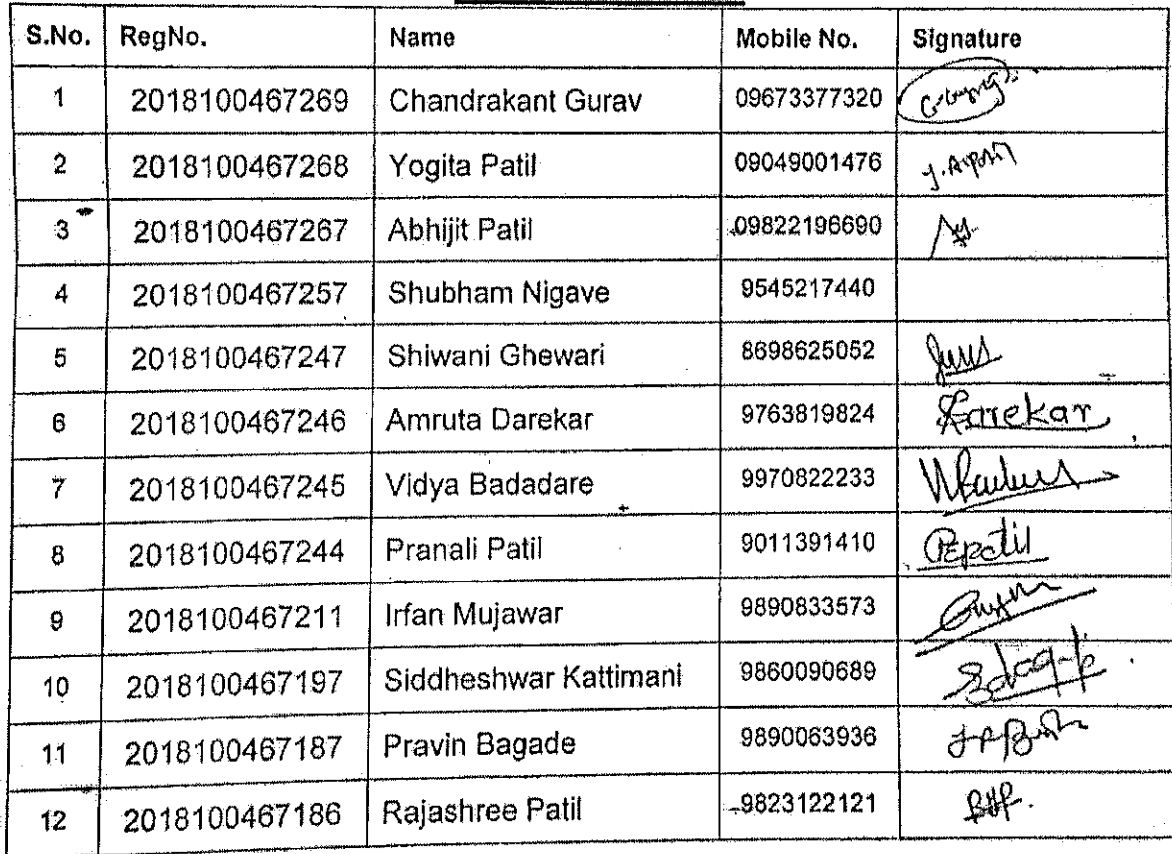 S.No. RegNo. Name Mobile No. Signature
1 2018100467269 Chandrakant Gurav 09673377320
2 2018100467268 Yogita Patil 09049001476
3 2018100467267 Abhijit Patil 09822196690
4 2018100467257 Shubham Nigave 9545217440
5 2018100467247 Shiwani Ghewari 8698625052
6 2018100467246 Amruta Darekar 9763819824 Darekar
7 2018100467245 Vidya Badadare 9970822233
8 2018100467244 Pranali Patil 9011391410 PEpatil
9 2018100467211 Irfan Mujawar 9890833573
10 2018100467197 Siddheshwar Kattimani 9860090689
11 2018100467187 Pravin Bagade 9890063936
12 2018100467186 Rajashree Patil 9823122121